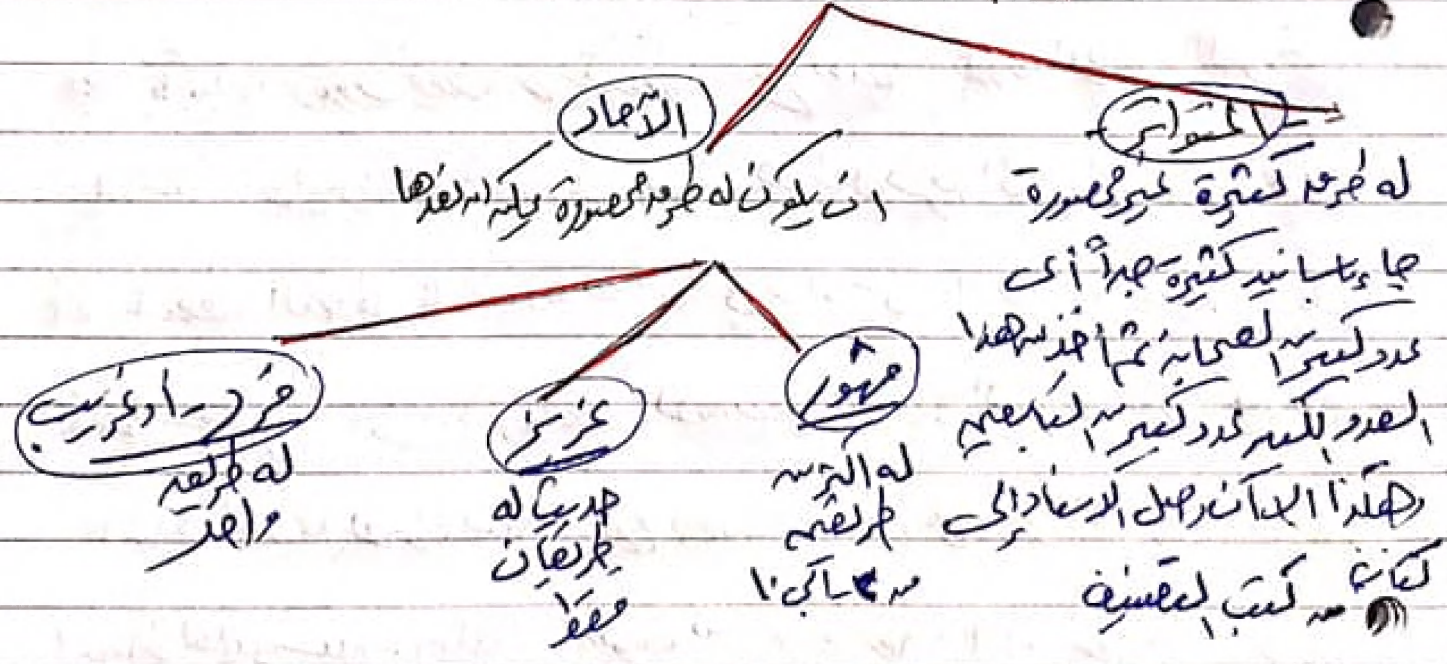 المتواتر
له طرق كثيرة غير محصورة
جاء بأسانيد كثيرة جداً أى
عدد كبير من الصحابة ثم أخذ من هذا
العدد الكبير عدد كبير من التابعين
وهكذا الا أن وصل الاسناد إلى
كتاب من كتب التصنيف
الآحاد
ان يكون له طرق محصورة يمكن ان نعدها
مشهور
له اكثر من
طريقين
من ٣ الي ١٠
عزيز
حديث له
طريقان
فقط
فرد او غريب
له طريق
واحد